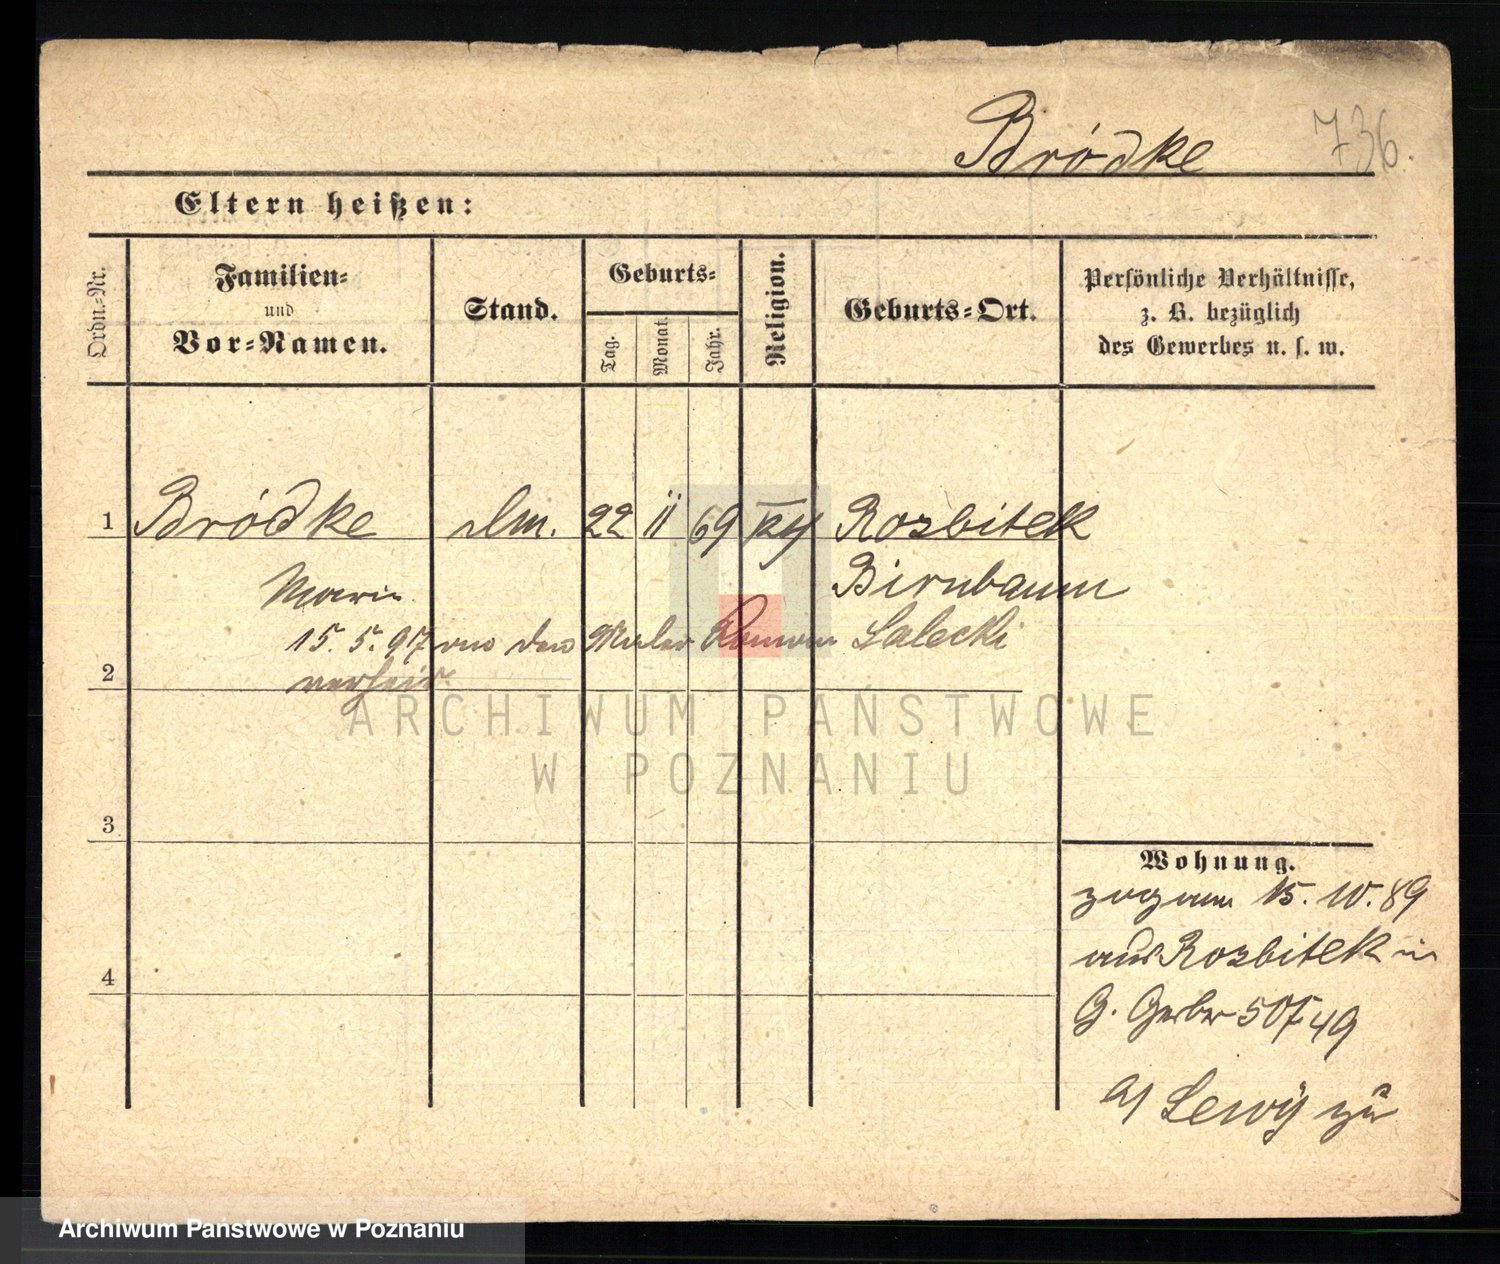 Bródke 736.
Eltern heißen:
Ordn.-Nr.
Familien-
und
Vor-Namen.
Stand.
Geburts-
Tag.
Monat.
Jahr.
Religion.
Geburts-Ort.
Persönliche Verhältnisse,
z. B. bezüglich
des Gewerbes u. s. w.
1 Bródke 22 II 69 Rozbitek
Marie Birnbaum
15. 5. 97 an den Maler Roman Salecki
2 verheir.
ARCHIWUM PAŃSTWOWE
W POZNANIU
3
Wohnung.
zog am 15. 10. 89
aus Rozbitek in
4
G. Gerber 50/49
a/ Lewÿ zu
Archiwum Państwowe w Poznaniu